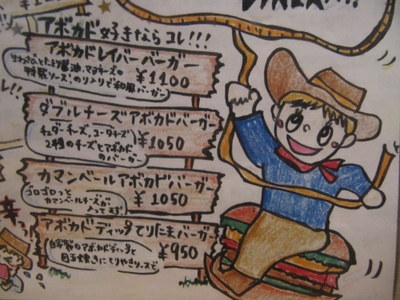 DINER!!!
アボカド好きならコレ!!!
アボカドレイバーバーガー
醤油、マヨネーズの
特製ソース。のりノリで和風バーガー
¥1100
ダブルチーズアボカドバーガー
チェダーチーズ、ゴーダチーズ
2種のチーズとアボカド
のバーガー
¥1050
カマンベールアボカドバーガー
ゴロゴロっと
カマンベールチーズが
入ってます
¥1050
アボカドディップてりたまバーガー
自家製のアボカドディップと
目玉焼きにてりやきソースで
¥950